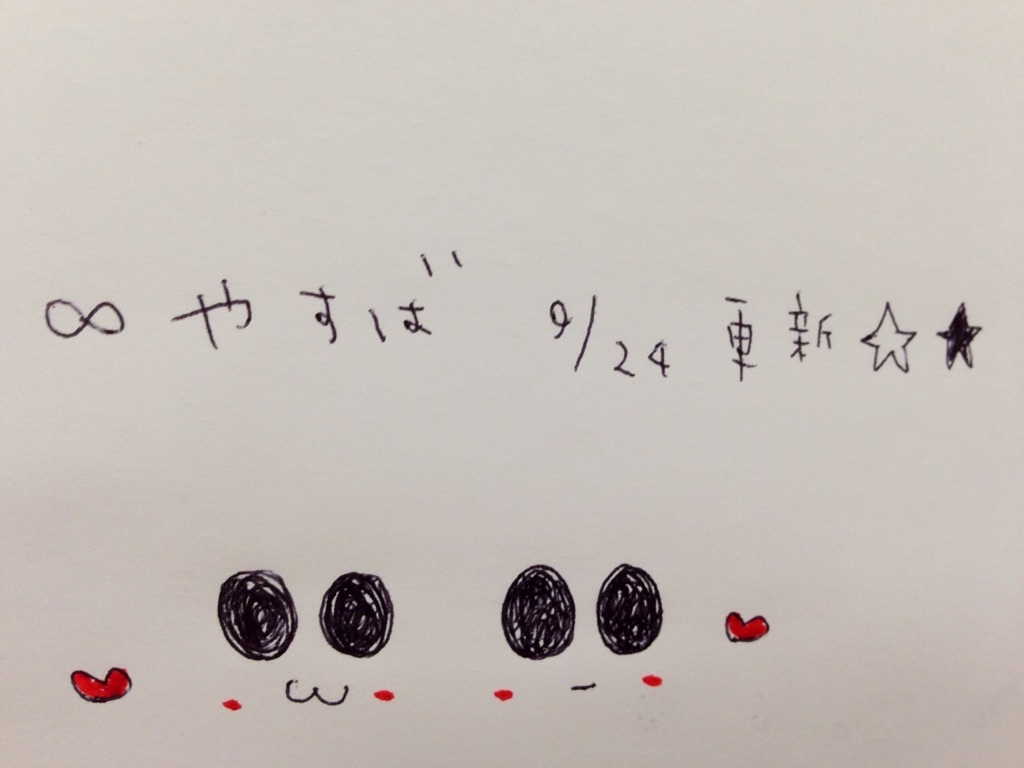 ∞ やすば 9/24 更新☆★